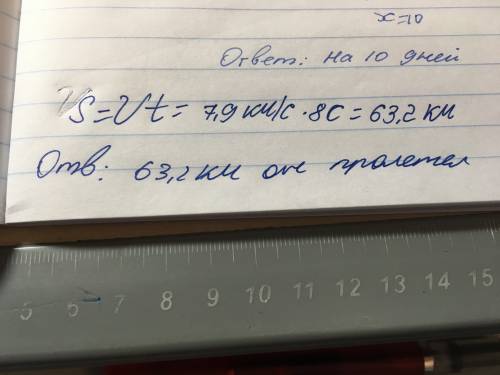 x=10
Ответ: на 10 дней
S=Vt= 7,9 км/с · 8с = 63,2 км
Отв: 63,2 км он пролетел
5 6 7 8 9 10 11 12 13 14 15